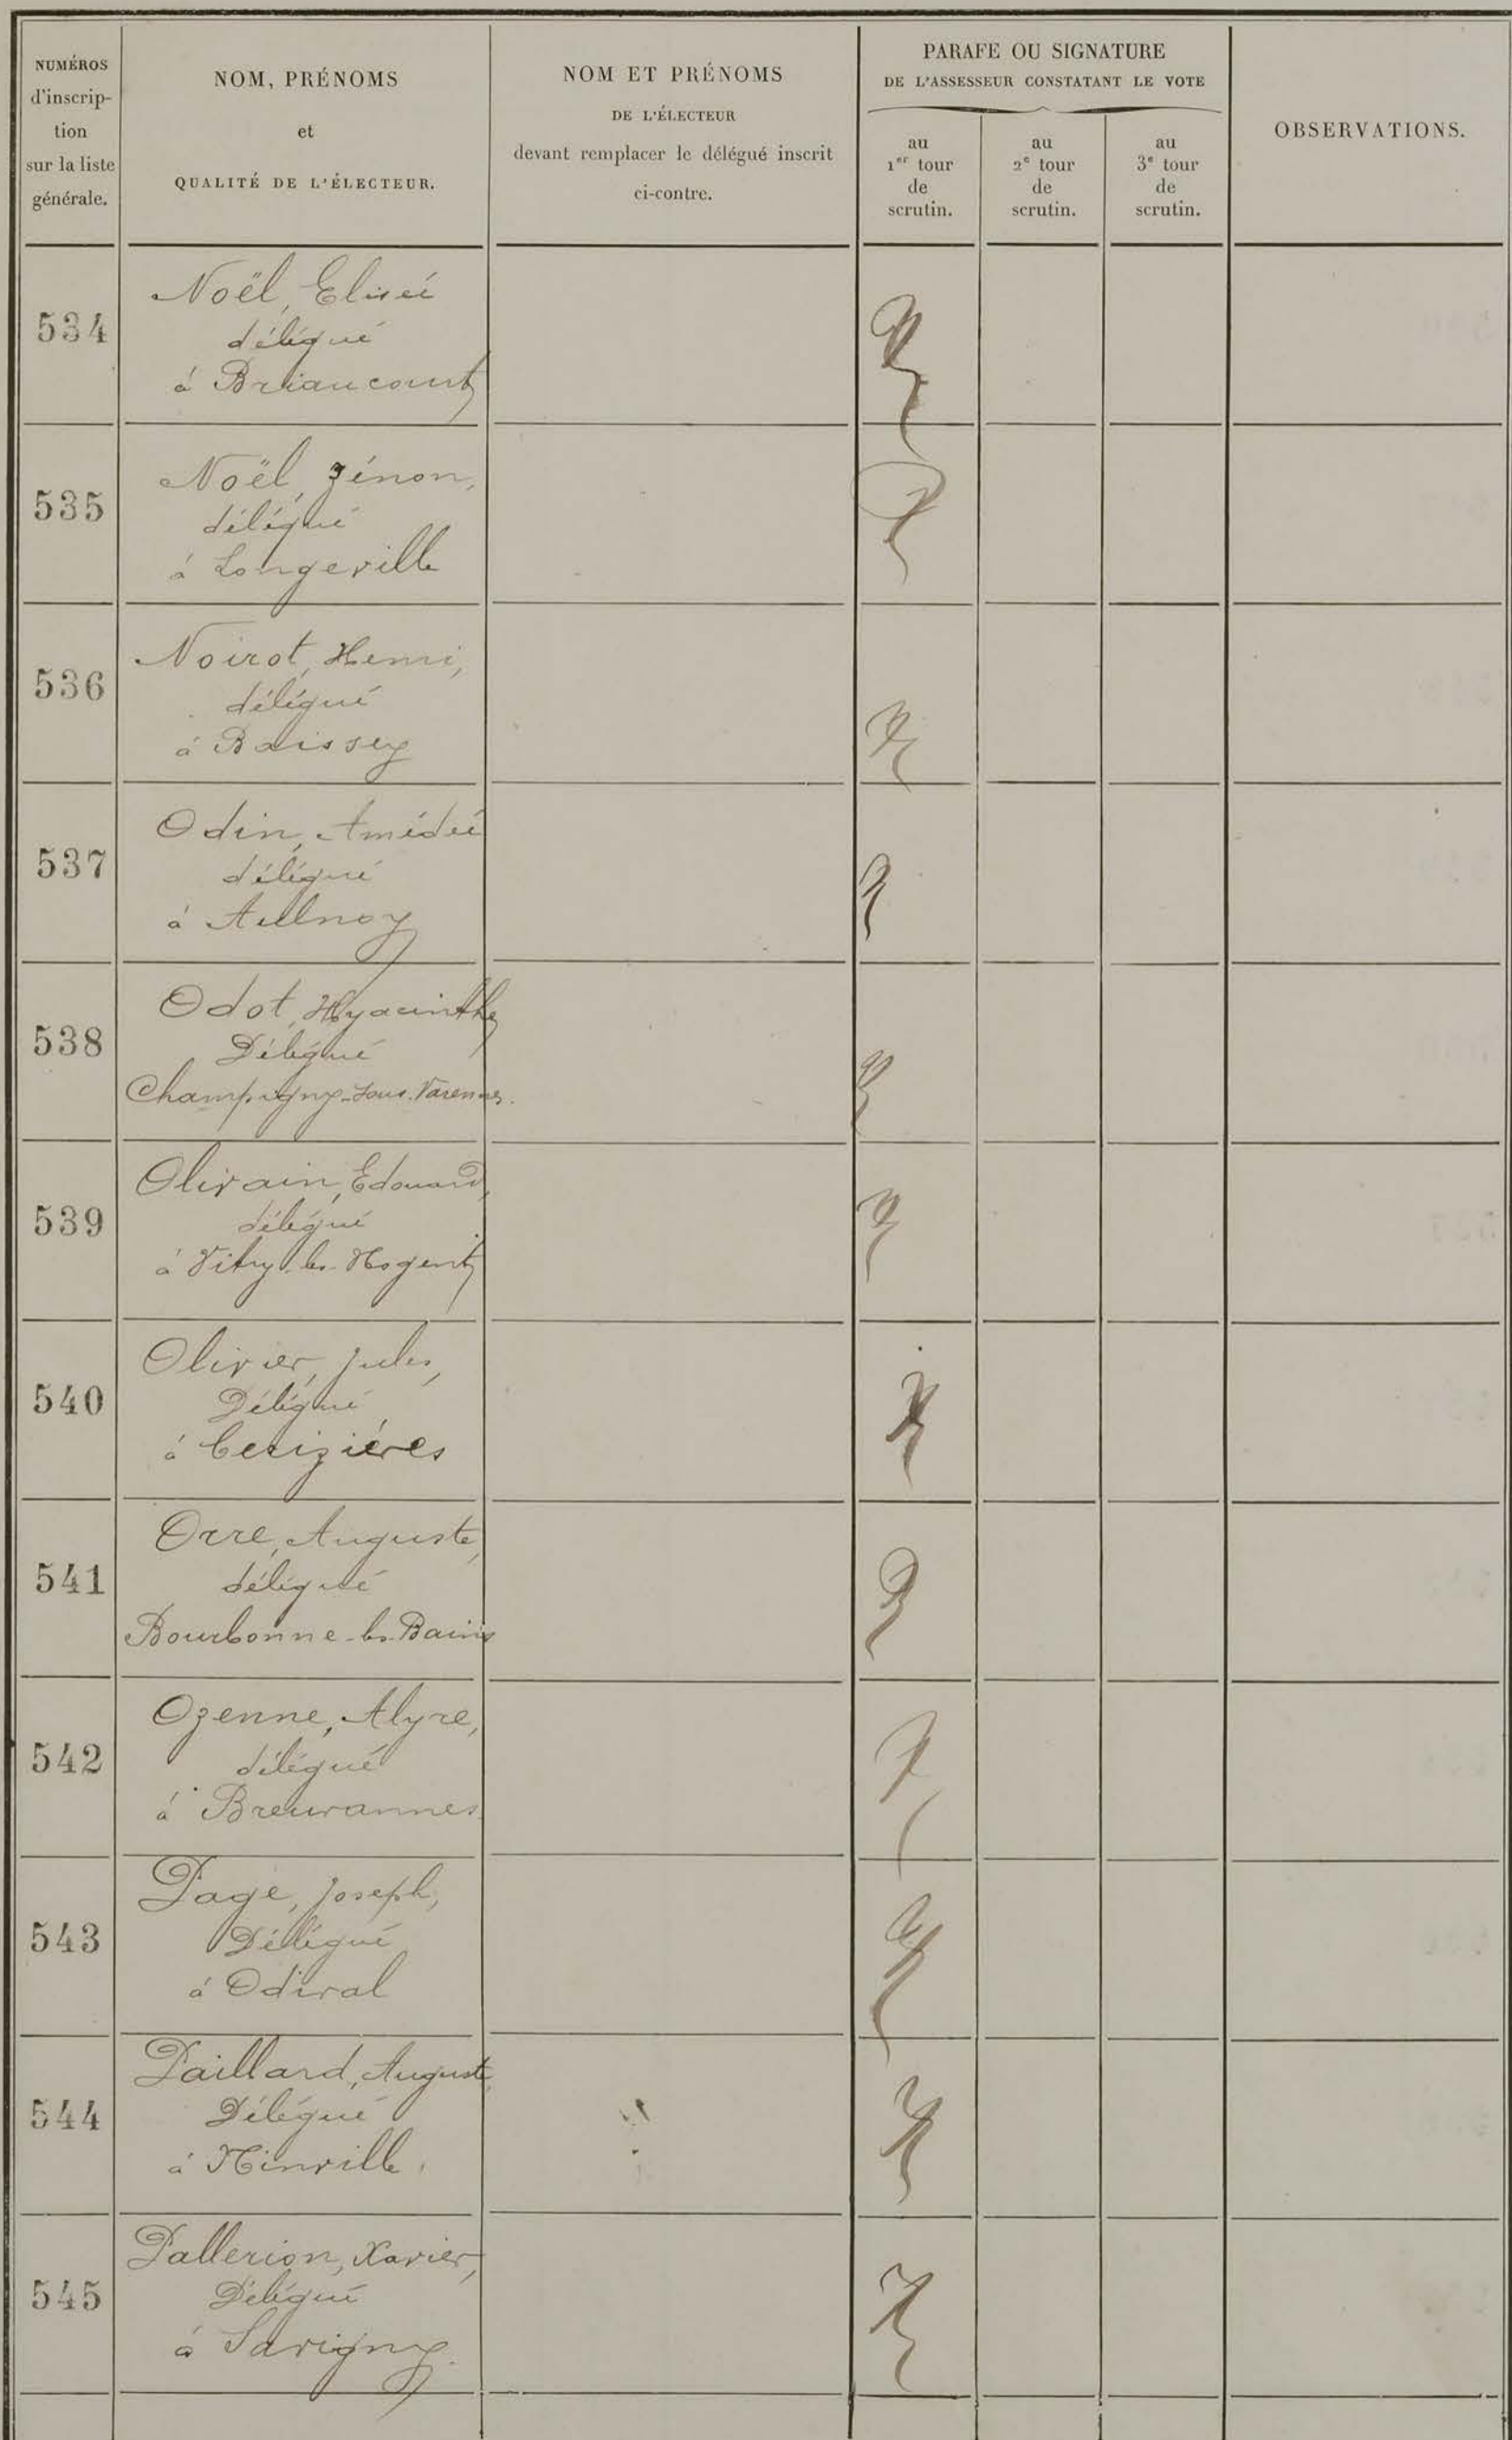 NUMÉROS
d'inscrip-
tion
sur la liste
générale.
NOM, PRÉNOMS
et
QUALITÉ DE L'ÉLECTEUR.
NOM ET PRÉNOMS
DE L'ÉLECTEUR
devant remplacer le délégué inscrit
ci-contre.
PARAFE OU SIGNATURE
DE L'ASSESSEUR CONSTATANT LE VOTE
au
1er tour
de
scrutin.
au
2e tour
de
scrutin.
au
3e tour
de
scrutin.
OBSERVATIONS.
534
Noël, Elisée
délégué
à Briaucourt
535
Noël, Zénon,
délégué
à Longeville
536
Noirot, Henri,
délégué
à Baissey
537
Odin, Amédée
délégué
à Aulnoy
538
Odot, Hyacinthe
Délégué
Champigny-sous-Varennes.
539
Olivain, Edouard,
délégué
à Vitry-les-Nogent
540
Olivier, Jules,
Délégué
à Cerizières
541
Orre, Auguste,
délégué
Bourbonne-les-Bains
542
Ozenne, Alyre,
délégué
à Breuvannes
543
Page, Joseph,
Délégué
à Odival
544
Paillard, Auguste,
Délégué
à Ninville.
545
Pallerion, Xavier,
Délégué
à Savigny.